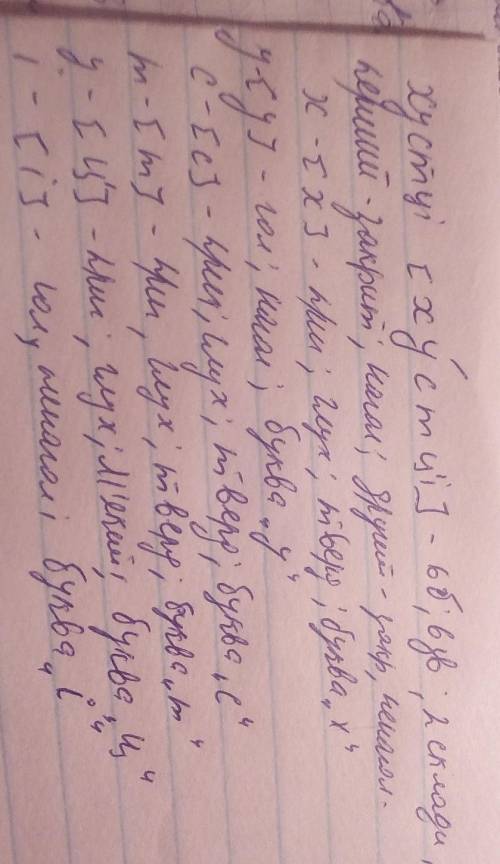 хустці [х у́ с т ц' і] - 6б, 6зв, 2 склади
перший - закрит, нагол; другий - закр, ненагол.
х - [х] - при; глух; тверд; буква „х“
у - [у] - гол; нагол; буква „у“
с - [с] - приг; глух; тверд; буква „с“
т - [т] - при, глух; тверд; буква „т“
ц - [ц'] - при; глух; м'який; буква „ц“
і - [і] - гол, ненагол; буква „і“